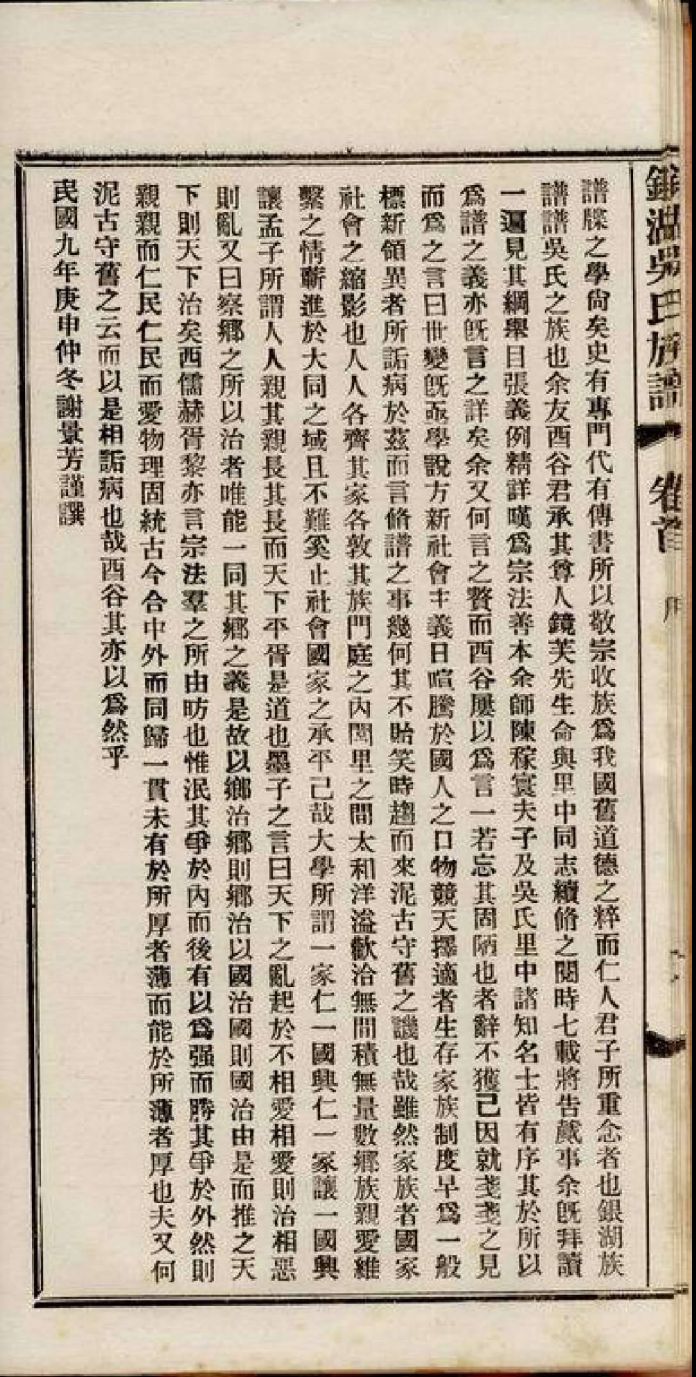 銀湖吳氏族譜 卷首
譜牒之學尙矣史有專門代有傳書所以敬宗收族爲我國舊道德之粹而仁人君子所重念者也銀湖族
譜譜吳氏之族也余友酉谷君承其尊人鏡芙先生命與里中同志續脩之閱時七載將告蕆事余旣拜讀
一遍見其綱舉目張義例精詳嘆爲宗法善本余師陳稼寘夫子及吳氏里中諸知名士皆有序其於所以
爲譜之義亦旣言之詳矣余又何言之贅而酉谷屢以爲言一若忘其固陋也者辭不獲已因就戔戔之見
而爲之言曰世變旣亟學說方新社會主義日喧騰於國人之口物競天擇適者生存家族制度早爲一般
標新領異者所詬病於茲而言脩譜之事幾何其不貽笑時趨而來泥古守舊之譏也哉雖然家族者國家
社會之縮影也人人各齊其家各敦其族門庭之內閭里之間太和洋溢歡洽無間積無量數鄉族親愛維
繫之情蘄進於大同之域且不難奚止社會國家之承平已哉大學所謂一家仁一國興仁一家讓一國興
讓孟子所謂人人親其親長其長而天下平胥是道也墨子之言曰天下之亂起於不相愛相愛則治相惡
則亂又曰察鄉之所以治者唯能一同其鄉之義是故以鄉治鄉則鄉治以國治國則國治由是而推之天
下則天下治矣西儒赫胥黎亦言宗法羣之所由昉也惟泯其爭於內而後有以爲强而勝其爭於外然則
親親而仁民仁民而愛物理固統古今合中外而同歸一貫未有於所厚者薄而能於所薄者厚也夫又何
泥古守舊之云而以是相詬病也哉酉谷其亦以爲然乎
民國九年庚申仲冬謝景芳謹譔